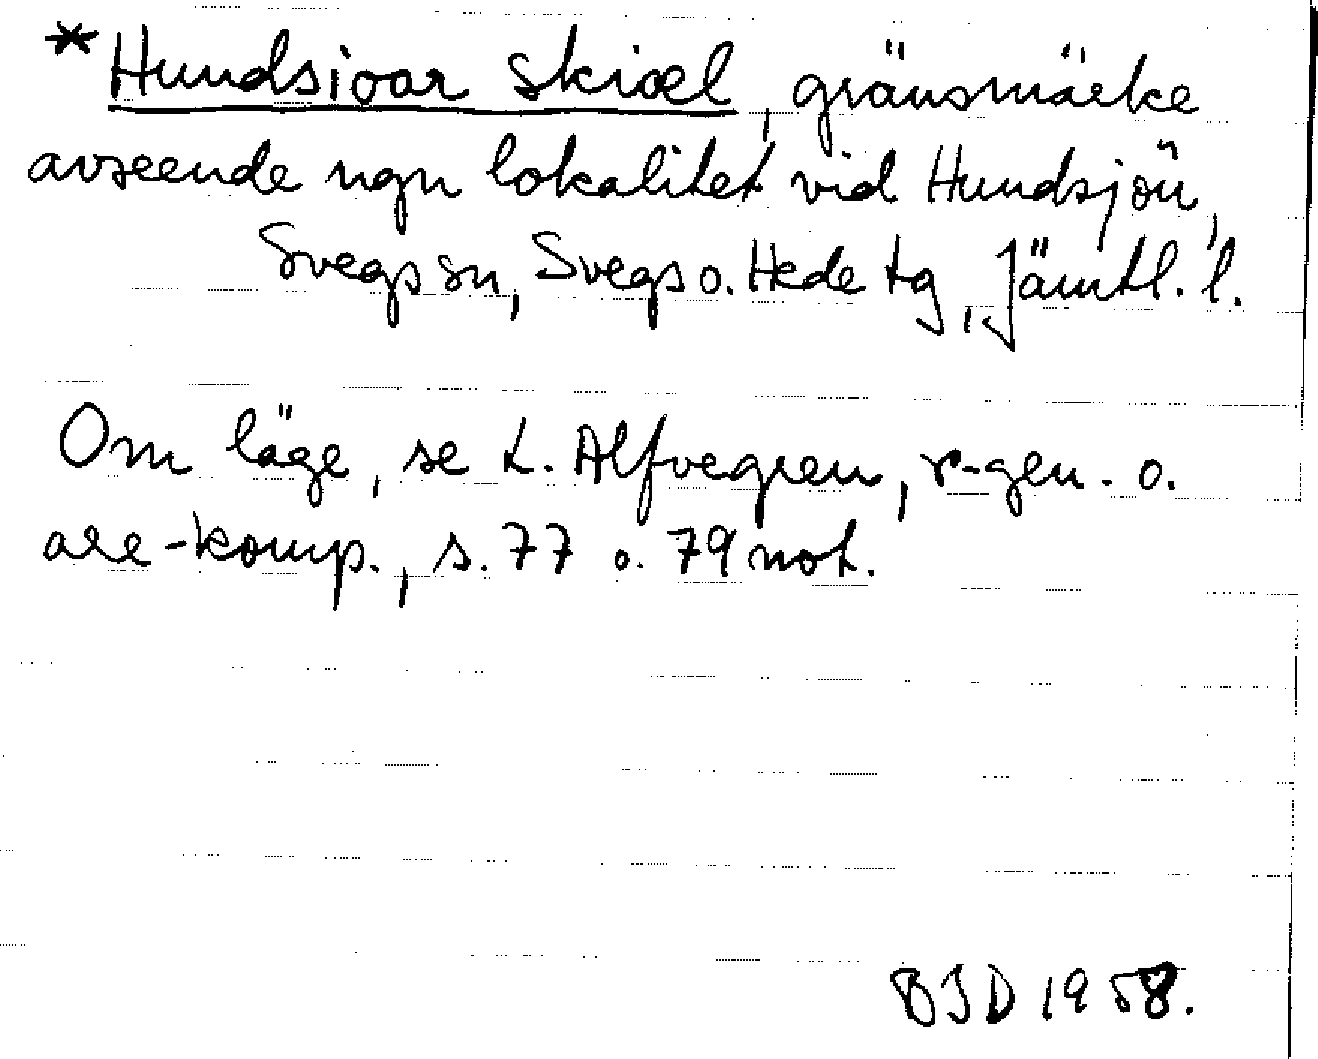 *Hundsioar skiæl, gränsmärke
avseende ngn lokalitet vid Hundsjön,
Svegs sn, Svegs o. Hede tg, Jämtl. l.
Om läge, se L. Alfvegren, r-gen. o.
are-komp., s. 77 o. 79 not.
BJD 1958.